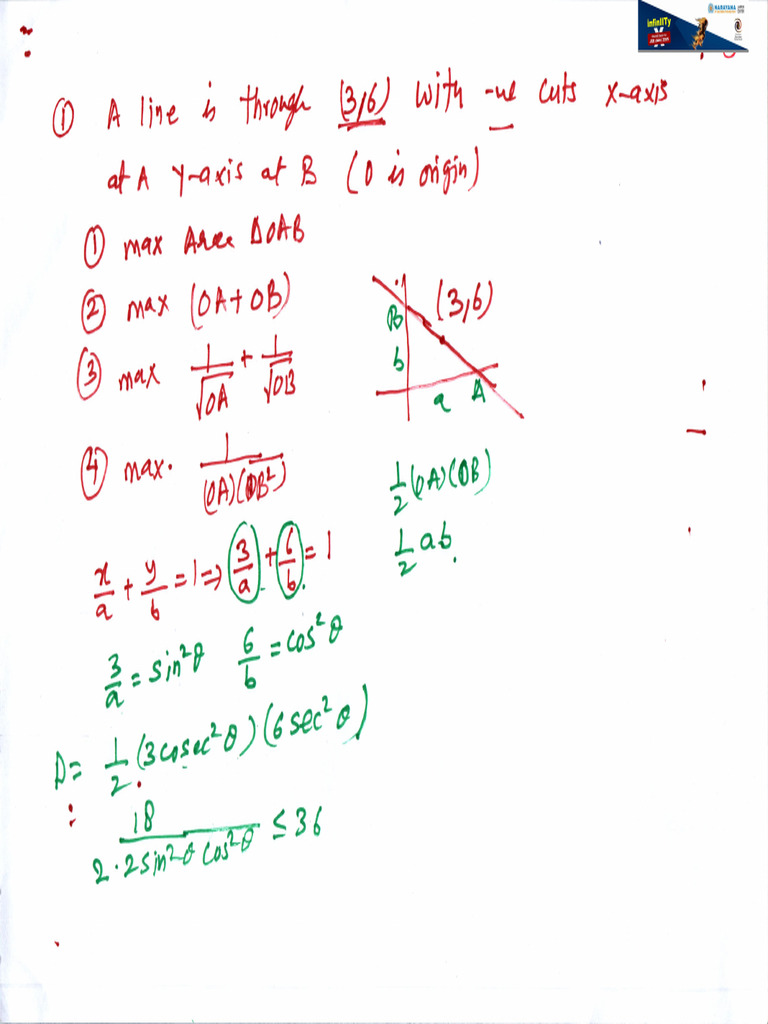 infinITy
NARAYANA
① A line is through (3,6) with -ve cuts x-axis
at A y-axis at B (O is origin)
① max Area ΔOAB
② max (OA+OB)
③ max 1/√OA + 1/√OB
④ max. 1/(OA)(OB²)
(3,6)
B
b
a A
1/2 (OA)(OB)
1/2 ab.
x/a + y/b = 1 ⇒ 3/a + 6/b = 1
3/a = sin²θ 6/b = cos²θ
Δ = 1/2 (3cosec²θ)(6sec²θ)
: 18/2·2sin²θ cos²θ ≤ 36